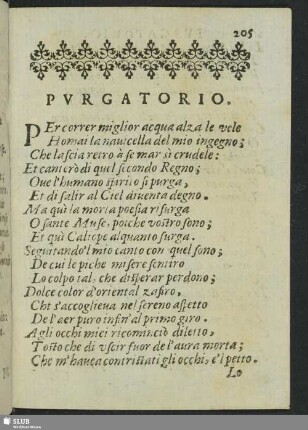 205
PVRGATORIO.
PEr correr miglior acqua alza le vele
Homai la nauicella del mio ingegno;
Che lascia retro à se mar sì crudele:
Et canterò di quel secondo Regno;
Oue l'humano spirito si purga,
Et di salir al Ciel diuenta degno.
Ma quì la morta poesia risurga
O sante Muse, poiche vostro sono;
Et quì Caliope alquanto surga.
Seguitando'l mio canto con quel sono;
De cui le piche misere sentiro
Lo colpo tal, che disperar perdono;
Dolce color d'oriental zafiro,
Chi s'accoglieua nel sereno aspetto
De l'aer puro infin' al primo giro.
A gli occhi miei ricominciò diletto,
Tosto che di vscir fuor de l'aura morta;
Che m'hauea contristati gli occhi, e'l petto.
Lo
SLUB